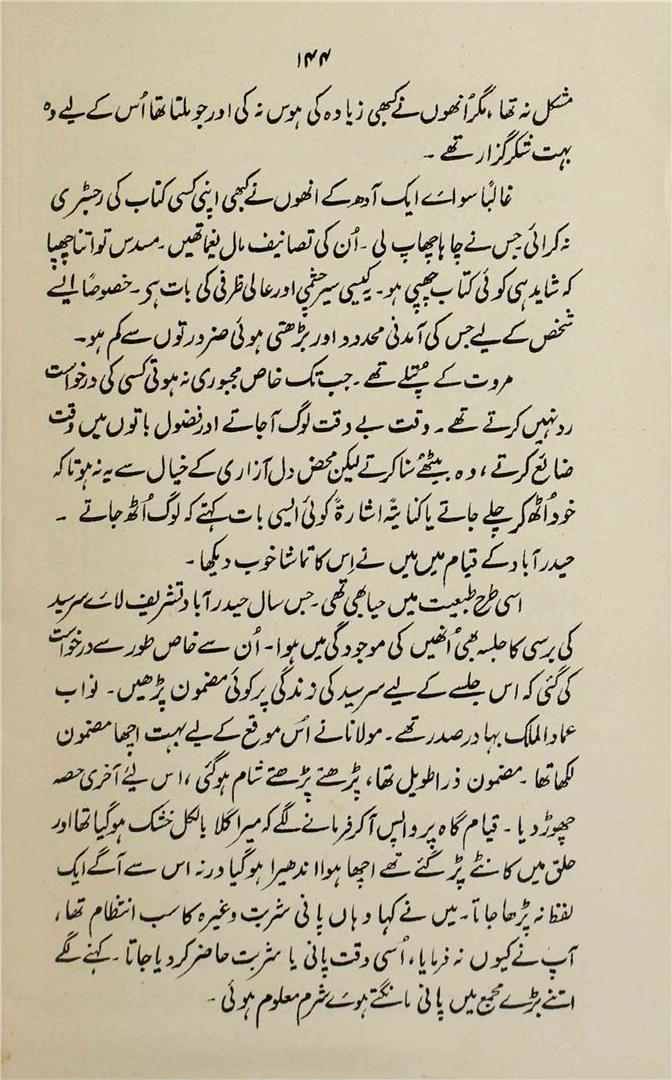 ۱۴۴
مشکل نہ تھا، مگر اُنھوں نے کبھی زیادہ کی ہوس نہ کی اور جو ملتا تھا اُس کے لیے وہ
بہت شکر گزار تھے ۔
غالباً سواے ایک آدھ کے انھوں نے کبھی اپنی کسی کتاب کی رجسٹری
نہ کرائی جس نے چاہا چھاپ لی ۔ اُن کی تصانیف مال یغما تھیں۔ مسدس تو اتنا چھپا
کہ شاید ہی کوئی کتاب چھپی ہو۔ یہ کیسی سیر چشمی اور عالی ظرفی کی بات ہی۔ خصوصاً ایسے
شخص کے لیے جس کی آمدنی محدود اور بڑھتی ہوئی ضرورتوں سے کم ہو۔
مروت کے پُتلے تھے ۔ جب تک خاص مجبوری نہ ہوتی کسی کی درخواست
رد نہیں کرتے تھے ۔ وقت بے وقت لوگ آجاتے اور فضول باتوں میں وقت
ضائع کرتے ، وہ بیٹھے سنا کرتے لیکن محض دل آزاری کے خیال سے یہ نہ ہوتا کہ
خود اُٹھ کر چلے جاتے یا کنایۃً اشارۃً کوئی ایسی بات کہتے کہ لوگ اُٹھ جاتے ۔
حیدرآباد کے قیام میں میں نے اِس کا تماشا خوب دیکھا ۔
اسی طرح طبیعت میں حیا بھی تھی ۔ جس سال حیدرآباد تشریف لاے سرسید
کی برسی کا جلسہ بھی اُنھیں کی موجودگی میں ہوا۔ اُن سے خاص طور سے درخواست
کی گئی کہ اس جلسے کے لیے سرسید کی زندگی پر کوئی مضمون پڑھیں۔ نواب
عماد الملک بہادر صدر تھے ۔ مولانا نے اُس موقع کے لیے بہت اچھا مضمون
لکھا تھا ۔ مضمون ذرا طویل تھا، پڑھتے پڑھتے شام ہوگئی ، اس لیئے آخری حصہ
چھوڑ دیا ۔ قیام گاہ پر واپس آکر فرمانے لگے کہ میرا گلا بالکل خشک ہوگیا تھا اور
حلق میں کانٹے پڑ گئے تھے اچھا ہوا اندھیرا ہوگیا ورنہ اس سے آگے ایک
لفظ نہ پڑھا جاتا۔ میں نے کہا وہاں پانی شربت وغیرہ کا سب انتظام تھا ،
آپ نے کیوں نہ فرمایا، اُسی وقت پانی یا شربت حاضر کر دیا جاتا ۔ کہنے لگے
اتنے بڑے مجمع میں پانی مانگتے ہوے شرم معلوم ہوئی ۔